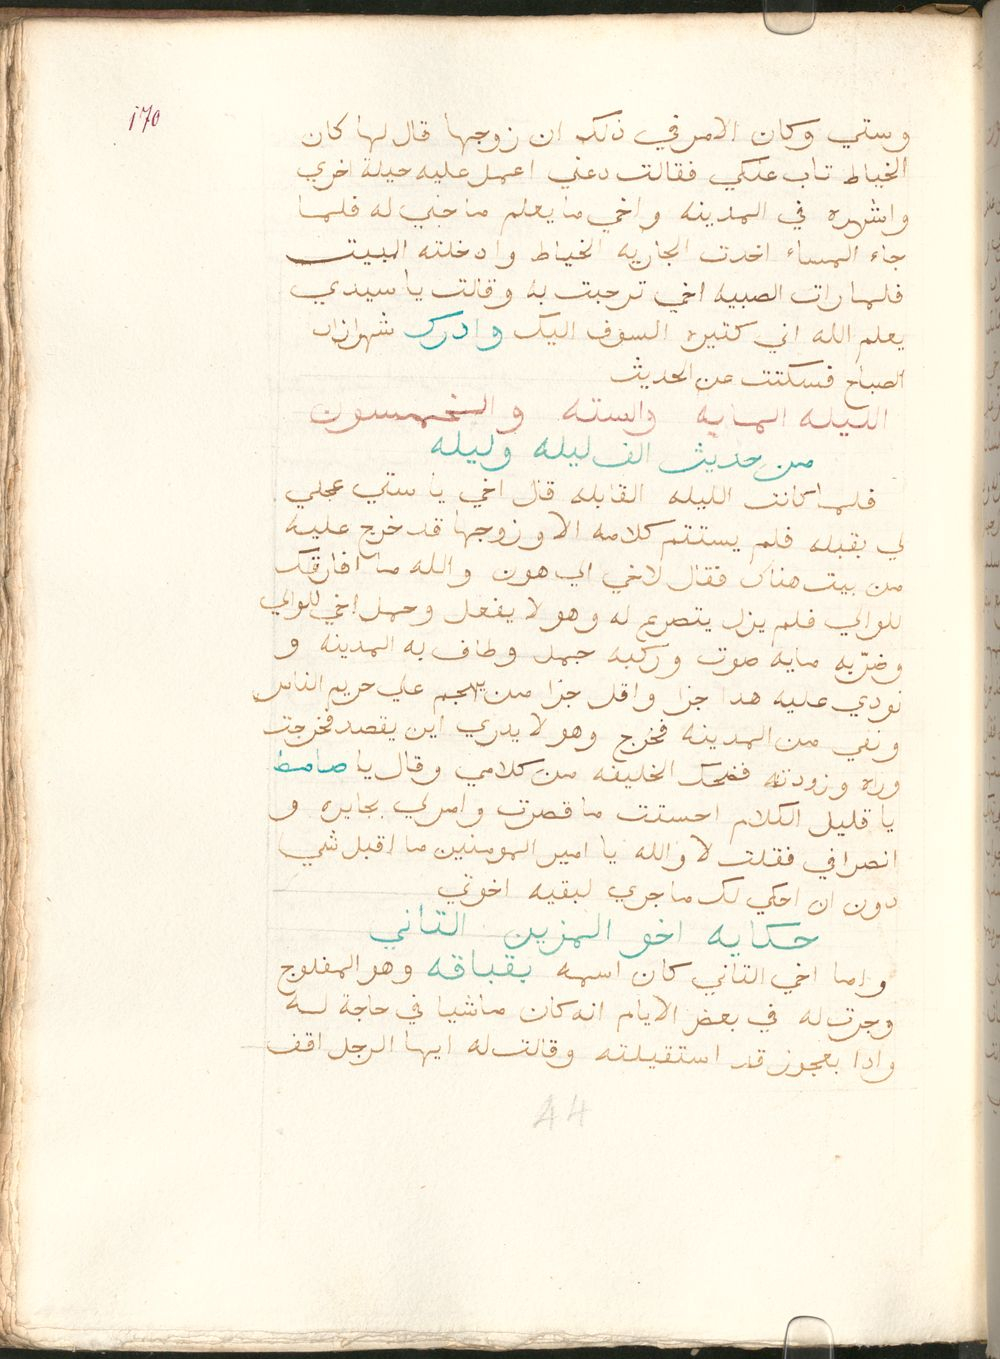 170
وستي وكان الامر في ذلك ان زوجها قال لها كان
الخياط تاب عنكي فقالت دعني اعمل عليه حيلة اخري
واشهره في المدينه واخي ما يعلم ما خبي له فلما
جاء المساء اخدت الجاريه الخياط وادخلته البيت
فلما رات الصبيه اخي ترحبت به وقالت يا سيدي
يعلم الله اني كتيره السوف اليك وادرك شهرازاد
الصباح فسكتت عن الحديث
الليله المايه والسته والخمسون
من حديث الف ليله وليله
فلما كانت الليله القابله قال اخي يا ستي عجلي
لي بقبله فلم يستتم كلامه الا وزوجها قد خرج عليه
من بيت هناك فقال لاخي الي هون والله ما افارقك
للوالي فلم يزل يتصرع له وهو لا يفعل وحمل اخي للوالي
وضربه مايه صوت وركبه جمل وطاف به المدينه و
نودي عليه هدا جزا واقل جزا من يهجم علي حريم الناس
ونفي من المدينه فخرج وهو لا يدري اين يقصد فخرجت
وراه وزودته فضحك الخليفه من كلامي وقال يا صامط
يا قليل الكلام احسنت ما قصرت وامر لي بجايره و
انصرافي فقلت لا والله يا امير المومنين ما اقبل شي
دون ان احكي لك ما جري لبقيه اخوتي
حكايه اخو المزين التاني
واما اخي التاني كان اسمه بقباقه وهو المفلوج
وجرت له في بعض الايام انه كان ماشيا في حاجة له
وادا بعجوز قد استقبلته وقالت له ايها الرجل اقف
A4